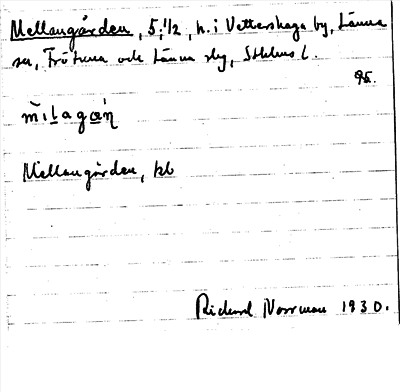 Mellangården, 5:1/2, h. i Vettershaga by, Länna
sn, Frötuna och Länna slg, Sthlms l.
95.
m̆ılagǻη
Mellangården, kb
Richard Norrman 1930.